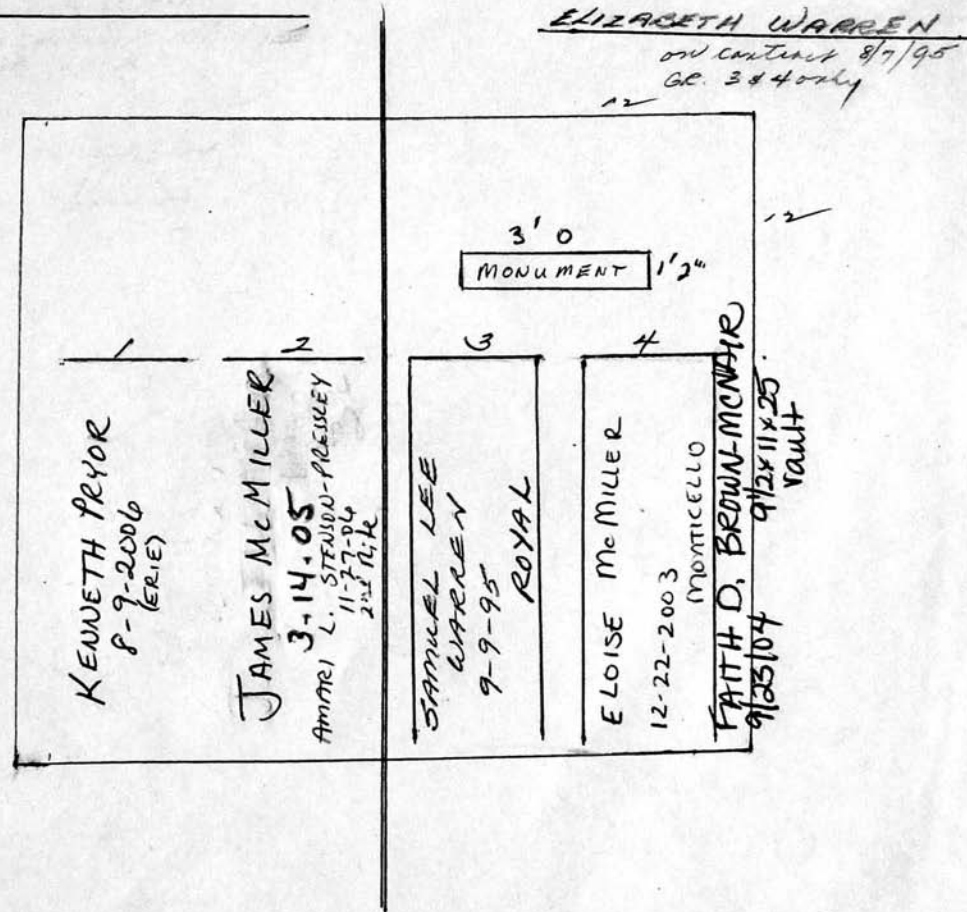 ELIZABETH WARREN
on contract 8/7/95
GR. 3 & 4 only
12
12
3' 0
MONUMENT 1' 2"
1
KENNETH PRYOR
8-9-2006
(ERIE)
2
JAMES MCMILLER
3.14.05
AMARI L. STENSON-PRESSLEY
2nd Rite
3
SAMUEL LEE
WARREN
9-9-95
ROYAL
4
ELOISE MCMILLER
12-22-2003
MONTICELLO
FAITH D. BROWN-MCNAIR
9/23/04 9 1/2 x 11 x 25
vault